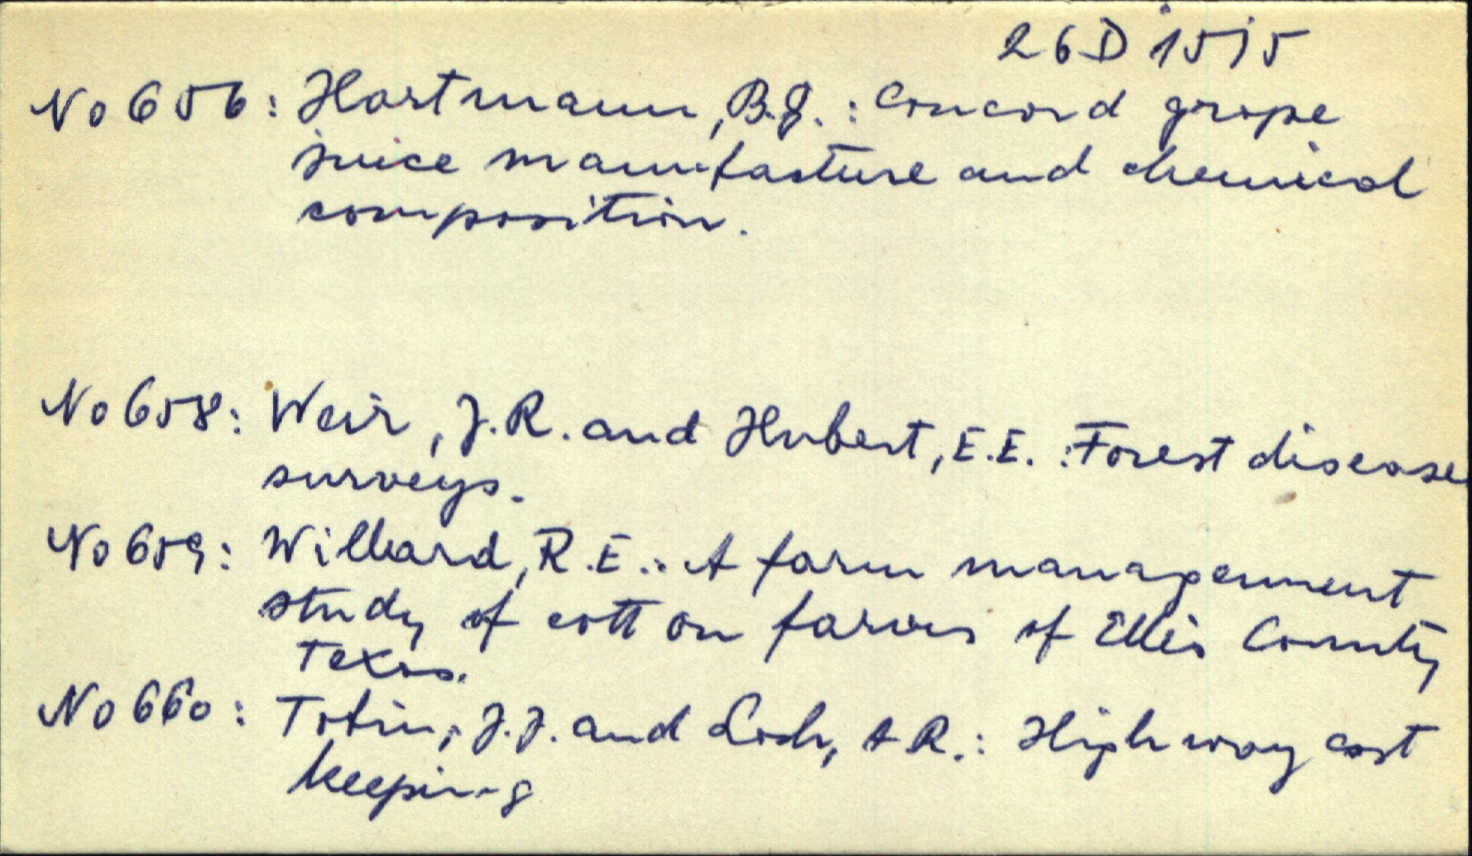 26D 1515
No 656: Hartmann, B.G.: Concord grape
juice manufacture and chemical
composition.
No 658: Weir, J.R. and Hubert, E.E.: Forest disease
surveys.
No 659: Willard, R.E.: A farm management
study of cotton farms of Ellis County
Texas.
No 660: Tobin, J.J. and Losh, A.R.: Highway cost
keeping